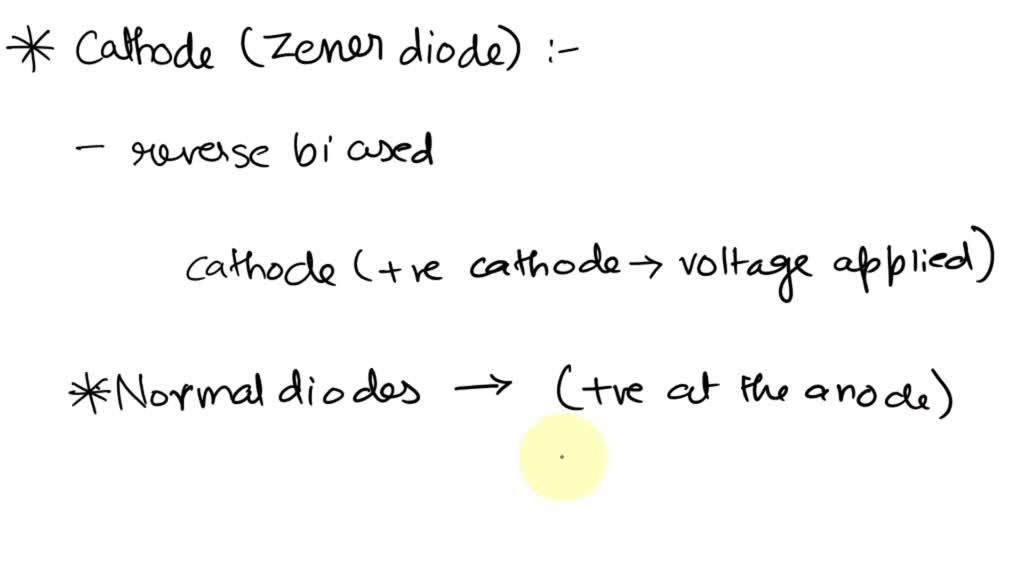 * Cathode (Zener diode) :-
- reverse biased
cathode (+ve cathode → voltage applied)
* Normal diodes → (+ve at the anode)